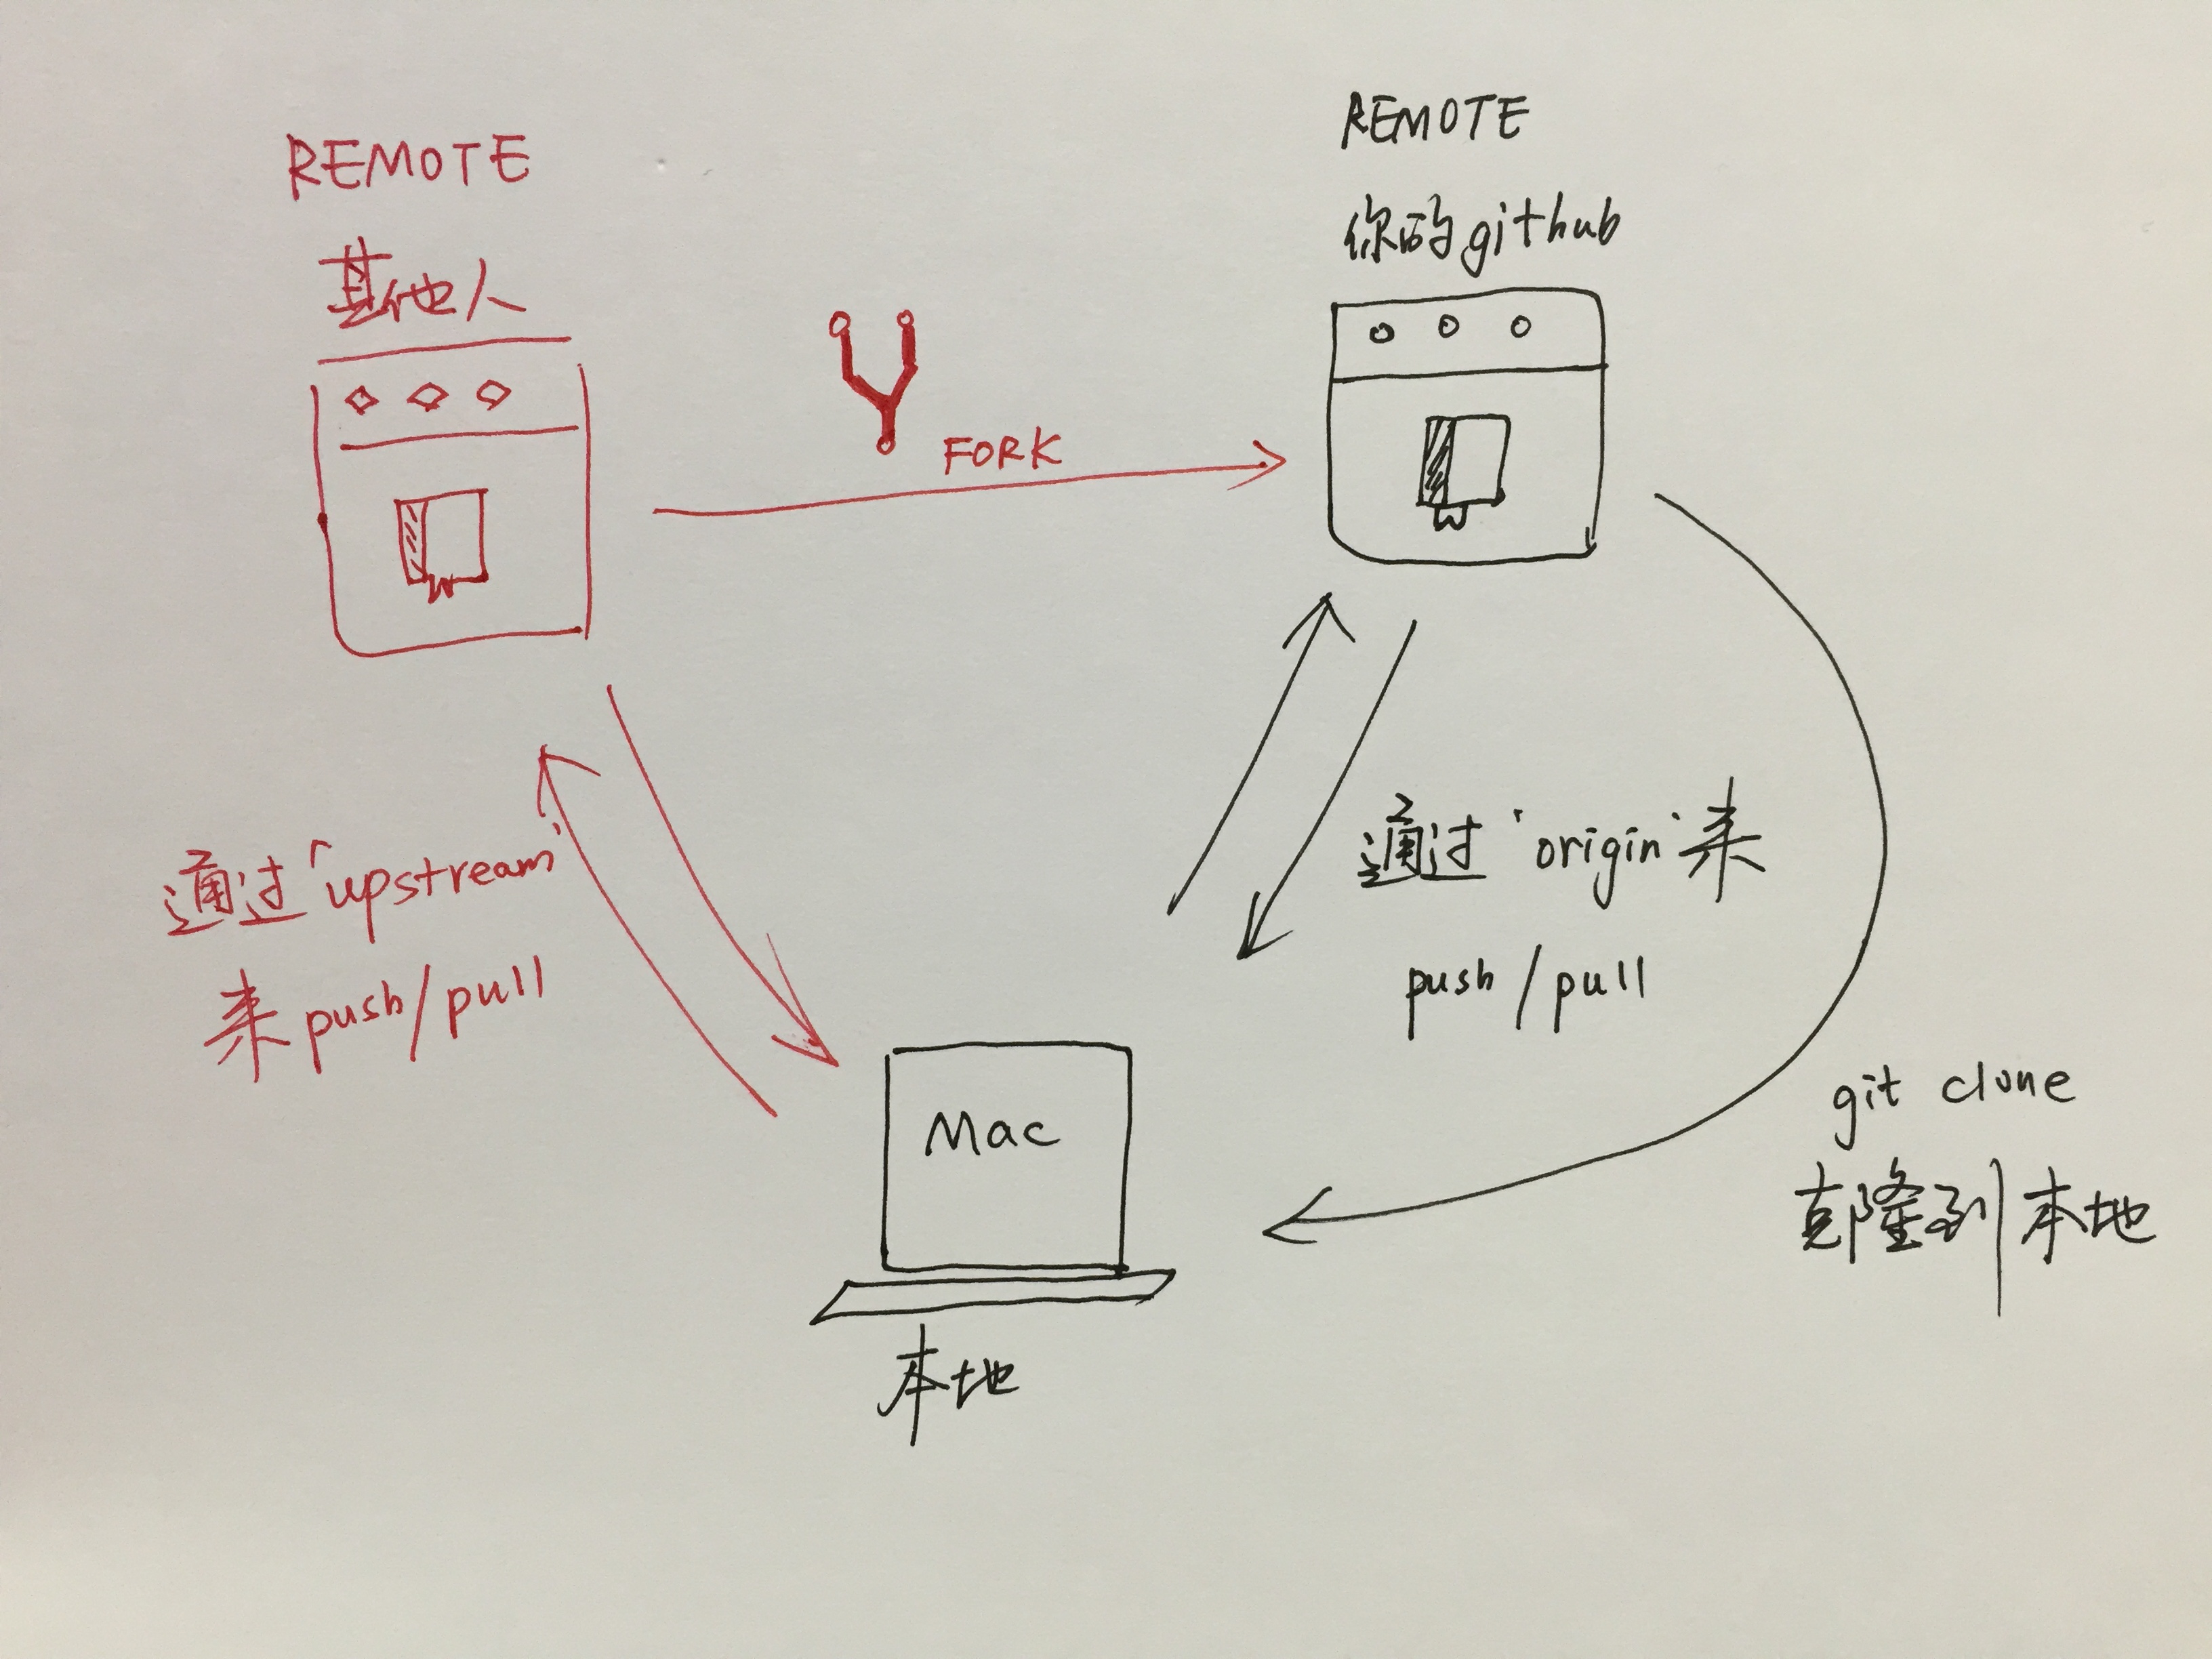 REMOTE
其他人
FORK
REMOTE
你的github
通过「upstream'
来push/pull
通过'origin'来
push/pull
git clone
克隆到本地
Mac
本地